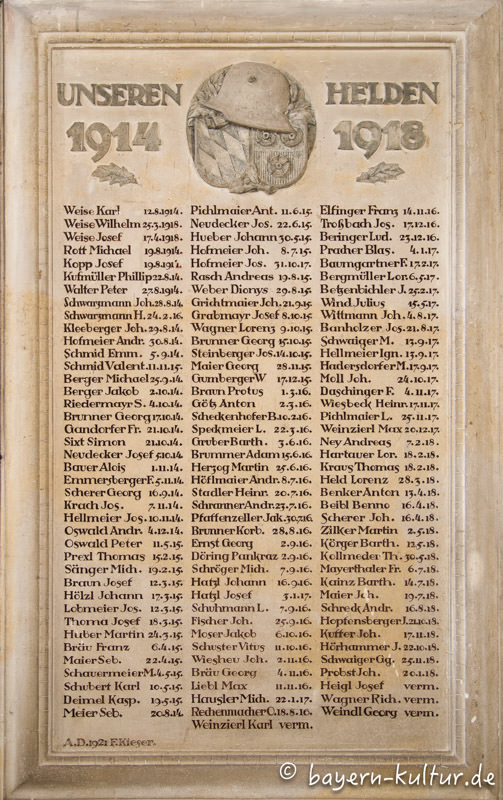 UNSEREN HELDEN
1914 1918
Weise Karl 12.8.1914.
Weise Wilhelm 25.3.1918.
Weise Josef 17.4.1918.
Rott Michael 19.8.1914.
Kopp Josef 19.8.1914.
Kufmüller Phillip 22.8.14.
Walter Peter 27.8.1914.
Schwarzmann Joh. 28.8.14.
Schwarzmann H. 24.2.16.
Kleeberger Joh. 29.8.14.
Hofmeier Andr. 30.8.14.
Schmid Emm. 5.9.14.
Schmid Valent. 11.11.15.
Berger Michael 25.9.14.
Berger Jakob 2.10.14.
Riedermayr S. 4.10.14.
Brunner Georg 17.10.14.
Gandorfer Fr. 21.10.14.
Sixt Simon 21.10.14.
Neudecker Josef 5.10.14.
Bauer Alois 1.11.14.
Emmersberger F. 5.11.14.
Scherer Georg 16.9.14.
Krach Jos. 7.11.14.
Hellmeier Jos. 10.11.14.
Oswald Andr. 4.12.14.
Oswald Peter 11.5.15.
Prexl Thomas 15.2.15.
Sänger Mich. 19.2.15.
Braun Josef 12.3.15.
Hölzl Johann 17.3.15.
Lobmeier Jos. 12.3.15.
Thoma Josef 18.3.15.
Huber Martin 24.3.15.
Bräu Franz 6.4.15.
Maier Seb. 22.4.15.
Schauermeier M. 4.5.15.
Schubert Karl 10.5.15.
Deimel Kasp. 19.5.15.
Meier Seb. 20.8.14.
Pichlmaier Ant. 11.6.15.
Neudecker Jos. 22.6.15.
Hueber Johann 30.5.15.
Hofmeier Joh. 8.7.15.
Hofmeier Jos. 31.10.17.
Rasch Andreas 19.8.15.
Weber Dionys 29.8.15.
Grichtmaier Joh. 21.9.15.
Grabmayr Josef 8.10.15.
Wagner Lorenz 9.10.15.
Brunner Georg 15.10.15.
Steinberger Jos. 14.10.15.
Maier Georg 28.11.15.
Gumberger W. 17.12.15.
Braun Protus 1.3.16.
Götz Anton 2.3.16.
Scheckenhofer B. 10.2.16.
Speckmeier L. 22.3.16.
Gruber Barth. 3.6.16.
Brummer Adam 15.6.16.
Herzog Martin 25.6.16.
Höflmaier Andr. 8.7.16.
Stadler Heinr. 20.7.16.
Schranner Andr. 23.7.16.
Pfaffenzeller Jak. 30.7.16.
Brunner Korb. 28.8.16.
Ernst Georg 2.9.16.
Döring Pankraz 2.9.16.
Schröger Mich. 7.9.16.
Hatzl Johann 16.9.16.
Hatzl Josef 3.1.17.
Schuhmann L. 7.9.16.
Fischer Joh. 25.9.16.
Moser Jakob 6.10.16.
Schuster Vitus 11.10.16.
Wiesheu Joh. 2.11.16.
Bräu Georg 4.11.16.
Liebl Max 11.11.16.
Hausler Mich. 22.1.17.
Rechenmacher C. 18.8.16.
Weinzierl Karl verm.
Elfinger Franz 14.11.16.
Troßbach Jos. 17.12.16.
Beringer Lud. 23.12.16.
Pracher Blas. 4.1.17.
Baumgartner F. 17.2.17.
Bergmüller Lor. 6.5.17.
Betzenbichler J. 25.2.17.
Wind Julius 15.5.17.
Wittmann Joh. 4.8.17.
Banholzer Jos. 21.8.17.
Schwaiger M. 13.9.17.
Hellmeier Ign. 13.9.17.
Hadersdorfer M. 17.9.17.
Moll Joh. 24.10.17.
Daschinger F. 4.11.17.
Wiesbeck Heinr. 17.11.17.
Pichlmaier L. 25.11.17.
Weinzierl Max 20.12.17.
Ney Andreas 7.2.18.
Hartauer Lor. 18.2.18.
Kraus Thomas 18.2.18.
Held Lorenz 28.3.18.
Benker Anton 13.4.18.
Beibl Benno 16.4.18.
Scherer Joh. 16.4.18.
Zilker Martin 2.5.18.
Körger Barth. 12.5.18.
Kollmeder Th. 30.5.18.
Mayerthaler Fr. 6.7.18.
Kainz Barth. 14.7.18.
Maier Joh. 19.7.18.
Schreck Andr. 16.8.18.
Hopfensberger J. 21.10.18.
Kuffer Joh. 17.11.18.
Hörhammer J. 22.10.18.
Schwaiger Gg. 25.11.18.
Probst Joh. 20.1.18.
Heigl Josef verm.
Wagner Rich. verm.
Weindl Georg verm.
A.D. 1921 F. Kieser.
© bayern-kultur.de